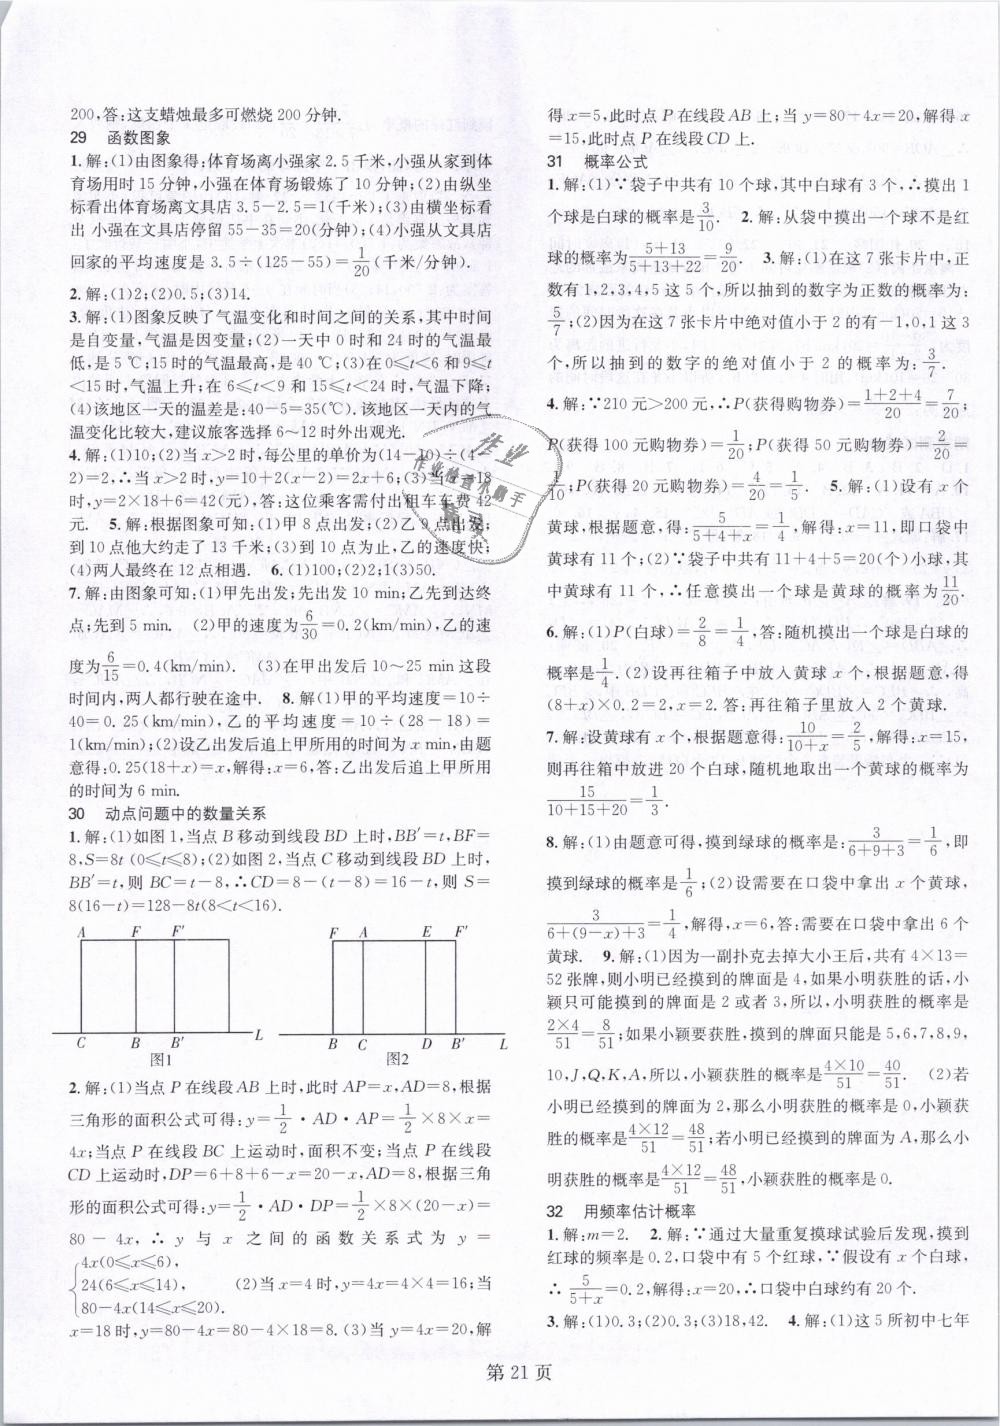 200,答:这支蜡烛最多可燃烧200分钟.
29 函数图象
1.解:(1)由图象得:体育场离小强家2.5千米,小强从家到体
育场用时15分钟,小强在体育场锻炼了10分钟;(2)由纵坐
标看出体育场离文具店3.5-2.5=1(千米);(3)由横坐标看
出 小强在文具店停留55-35=20(分钟);(4)小强从文具店
回家的平均速度是3.5÷(125-55)=1/20(千米/分钟).
2.解:(1)2;(2)0.5;(3)14.
3.解:(1)图象反映了气温变化和时间之间的关系,其中时间
是自变量,气温是因变量;(2)一天中0时和24时的气温最
低,是5 ℃;15时的气温最高,是40 ℃;(3)在0⩽t⩽6和9⩽t
<15时,气温上升;在6⩽t<9和15⩽t<24时,气温下降;
(4)该地区一天的温差是:40-5=35(℃).该地区一天内的气
温变化比较大,建议旅客选择6~12时外出观光.
4.解:(1)10;(2)当x>2时,每公里的单价为(14-10)÷(4-
2)=2,∴当x>2时,y=10+2(x-2)=2x+6;(3)当x=18
时,y=2×18+6=42(元),答:这位乘客需付出租车车费42
元. 5.解:根据图象可知:(1)甲8点出发;(2)乙9点出发;
到10点他大约走了13千米;(3)到10点为止,乙的速度快;
(4)两人最终在12点相遇. 6.(1)100;(2)2;1(3)50.
7.解:由图象可知:(1)甲先出发;先出发10 min;乙先到达终
点;先到5 min. (2)甲的速度为6/30=0.2(km/min),乙的速
度为6/15=0.4(km/min). (3)在甲出发后10~25 min这段
时间内,两人都行驶在途中. 8.解(1)甲的平均速度=10÷
40=0.25(km/min),乙的平均速度=10÷(28-18)=
1(km/min);(2)设乙出发后追上甲所用的时间为x min,由题
意得:0.25(18+x)=x,解得:x=6,答:乙出发后追上甲所用
的时间为6 min.
30 动点问题中的数量关系
1.解:(1)如图1,当点B移动到线段BD上时,BB′=t,BF=
8,S=8t (0⩽t⩽8);(2)如图2,当点C移动到线段BD上时,
BB′=t,则BC=t-8,∴CD=8-(t-8)=16-t,则S=
8(16-t)=128-8t(8<t<16).
A F F′
C B B′ L
图1
F A E F′
B C D B′ L
图2
2.解:(1)当点P在线段AB上时,此时AP=x,AD=8,根据
三角形的面积公式可得:y=1/2·AD·AP=1/2×8×x=
4x;当点P在线段BC上运动时,面积不变;当点P在线段
CD上运动时,DP=6+8+6-x=20-x,AD=8,根据三角
形的面积公式可得:y=1/2·AD·DP=1/2×8×(20-x)=
80-4x,∴y与x之间的函数关系式为y=
4x(0⩽x⩽6),
24(6⩽x⩽14), (2)当x=4时,y=4x=4×4=16;当
80-4x(14⩽x⩽20).
x=18时,y=80-4x=80-4×18=8.(3)当y=4x=20,解
得x=5,此时点P在线段AB上;当y=80-4x=20,解得x
=15,此时点P在线段CD上.
31 概率公式
1.解:(1)∵袋子中共有10个球,其中白球有3个,∴摸出1
个球是白球的概率是3/10. 2.解:从袋中摸出一个球不是红
球的概率为(5+13)/(5+13+22)=9/20. 3.解:(1)在这7张卡片中,正
数有1,2,3,4,5这5个,所以抽到的数字为正数的概率为:
5/7;(2)因为在这7张卡片中绝对值小于2的有-1,0,1这3
个,所以抽到的数字的绝对值小于2的概率为:3/7.
4.解:∵210元>200元,∴P(获得购物券)=(1+2+4)/20=7/20;
P(获得100元购物券)=1/20;P(获得50元购物券)=2/20=
1/10;P(获得20元购物券)=4/20=1/5. 5.解:(1)设有x个
黄球,根据题意,得:5/(5+4+x)=1/4,解得:x=11,即口袋中
黄球有11个;(2)∵袋子中共有11+4+5=20(个)小球,其
中黄球有11个,∴任意摸出一个球是黄球的概率为11/20.
6.解:(1)P(白球)=2/8=1/4,答:随机摸出一个球是白球的
概率是1/4. (2)设再往箱子中放入黄球x个,根据题意,得
(8+x)×0.2=2,x=2.答:再往箱子里放入2个黄球.
7.解:设黄球有x个,根据题意得:10/(10+x)=2/5,解得:x=15,
则再往箱中放进20个白球,随机地取出一个黄球的概率为
15/(10+15+20)=1/3.
8.解:(1)由题意可得,摸到绿球的概率是:3/(6+9+3)=1/6,即
摸到绿球的概率是1/6;(2)设需要在口袋中拿出x个黄球,
3/(6+(9-x)+3)=1/4,解得,x=6,答:需要在口袋中拿出6个
黄球. 9.解:(1)因为一副扑克去掉大小王后,共有4×13=
52张牌,则小明已经摸到的牌面是4,如果小明获胜的话,小
颖只可能摸到的牌面是2或者3,所以,小明获胜的概率是
(2×4)/51=8/51;如果小颖要获胜,摸到的牌面只能是5,6,7,8,9,
10,J,Q,K,A,所以,小颖获胜的概率是(4×10)/51=40/51. (2)若
小明已经摸到的牌面为2,那么小明获胜的概率是0,小颖获
胜的概率是(4×12)/51=48/51;若小明已经摸到的牌面为A,那么小
明获胜的概率是(4×12)/51=48/51,小颖获胜的概率是0.
32 用频率估计概率
1.解:m=2. 2.解:∵通过大量重复摸球试验后发现,摸到
红球的频率是0.2,口袋中有5个红球,∵假设有x个白球,
∴5/(5+x)=0.2,解得:x=20,∴口袋中白球约有20个.
3.解:(1)0.3;(2)0.3;(3)18,42. 4.解:(1)这5所初中七年
第21页
作业
作业检查小助手